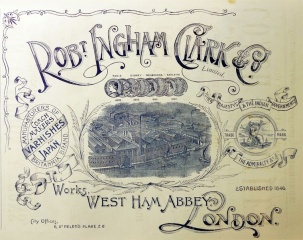 ROBT. INGHAM CLARK & CO.
Limited.
MANUFACTURERS OF
COACH
VARNISHES
JAPAN
HER MAJESTY'S & THE INDIAN GOVERNMENTS
& THE ADMIRALTY
TRADE
MARK
Works,
WEST HAM ABBEY,
ESTABLISHED
LONDON.
City Offices,